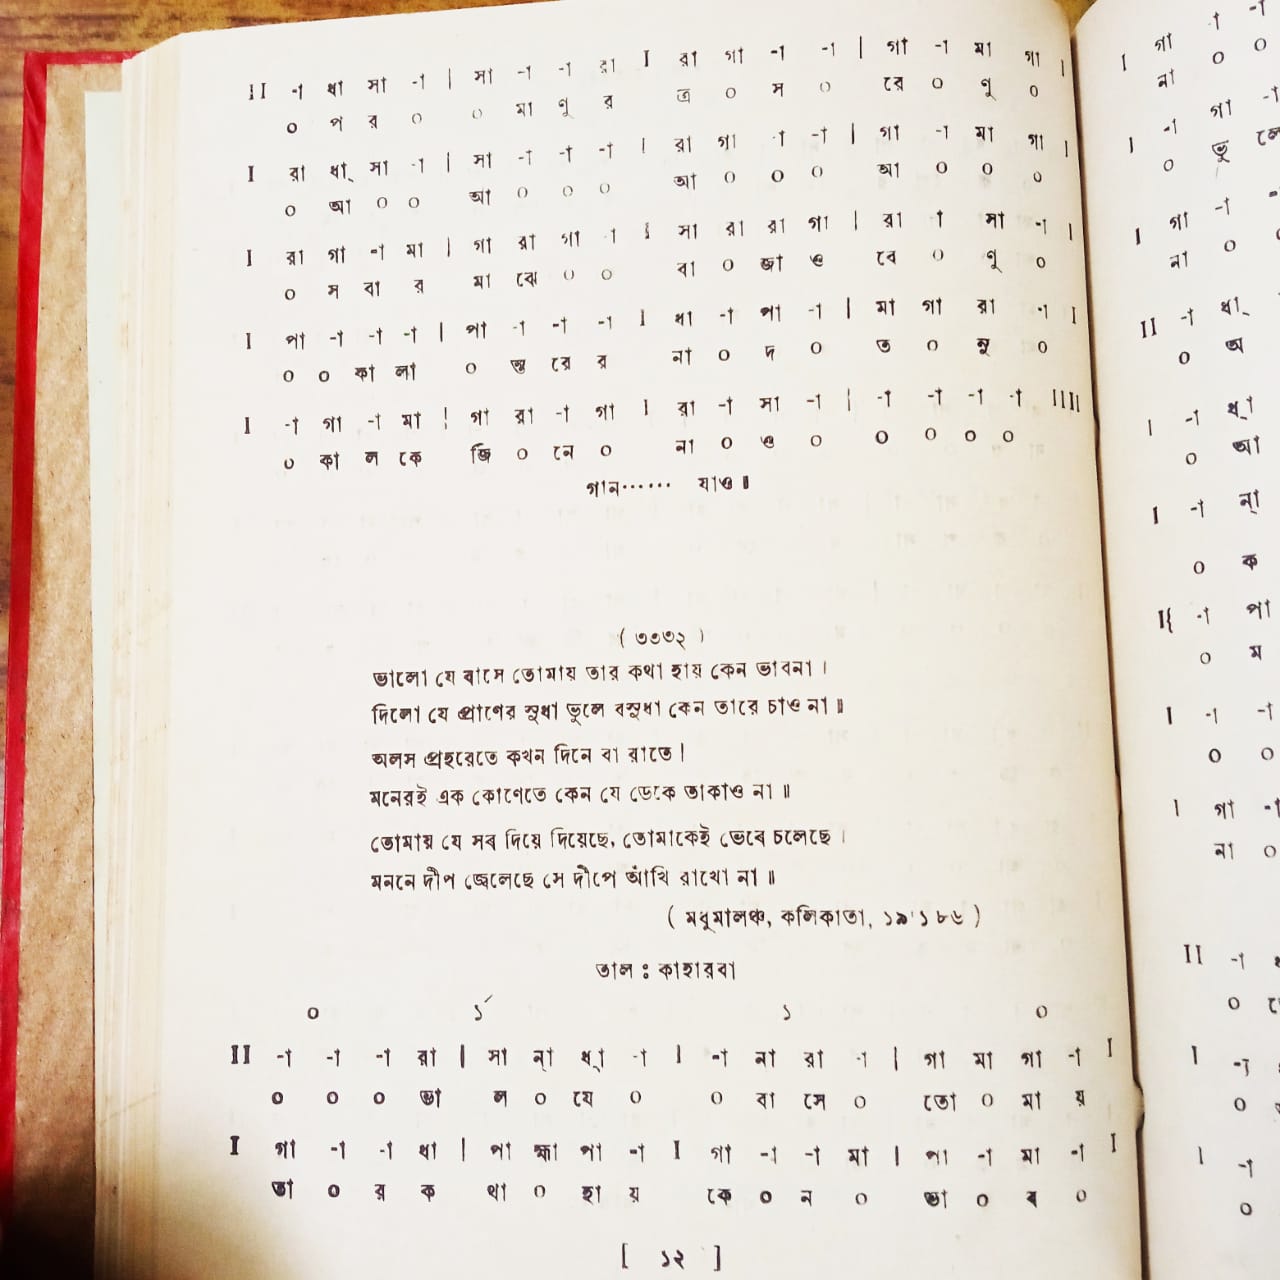 II -া ধা সা -া | সা -া -া রা I রা গা -া -া | গা -া মা গা I
০ প র ০ ০ মা ণু র ত্র ০ স ০ রে ০ ণু ০
I রা ধা্ সা -া | সা -া -া -া I রা গা -া -া | গা -া মা গা I
০ আ ০ ০ আ ০ ০ ০ আ ০ ০ ০ আ ০ ০ ০
I রা গা -া মা | গা রা গা -া I সা রা রা গা | রা -া সা -া I
০ স বা র মা ঝে ০ ০ বা ০ জা ও বে ০ ণু ০
I পা -া -া -া | পা -া -া -া I ধা -া পা -া | মা গা রা -া I
০ ০ কা লা ০ ন্ত রে র না ০ দ ০ ত ০ নু ০
I -া গা -া মা | গা রা -া গা I রা -া সা -া | -া -া -া -া IIII
০ কা ল কে জি ০ নে ০ না ০ ও ০ ০ ০ ০ ০
গান...... যাও ॥
( ৩৩৩২ )
ভালো যে বাসে তোমায় তার কথা হায় কেন ভাবনা ।
দিলো যে প্রাণের সুধা ভুলে বসুধা কেন তারে চাও না ॥
অলস প্রহরেতে কখন দিনে বা রাতে ।
মনেরই এক কোণেতে কেন যে ডেকে তাকাও না ॥
তোমায় যে সব দিয়ে দিয়েছে, তোমাকেই ভেবে চলেছে ।
মননে দীপ জ্বেলেছে সে দীপে আঁখি রাখো না ॥
( মধুমালঞ্চ, কলিকাতা, ১৯'১৮৬ )
তাল : কাহারবা
০ ১´ ১ ০
II -া -া -া রা | সা ন্া ধ্া -া I -া না রা -া | গা মা গা -া I
০ ০ ০ ভা ল ০ যে ০ ০ বা সে ০ তো ০ মা য়
I গা -া -া ধা | পা হ্মা পা -া I গা -া -া মা | পা -া মা -া I
তা ০ র ক থা ০ হা য় কে ০ ন ০ ভা ০ ব ০
[ ১২ ]
I গা -া -া
না ০ ০
I -া গা -া
০ ভু লে
I গা -া
না ০ ০
II -া ধা্
০ অ
I -া ধ্া
০ আ
I -া ন্া
০ ক
I{ -া পা
০ ম
I -া -া
০ ০
I গা -া
না ০
II -া
০
I -া
০
I -া
০